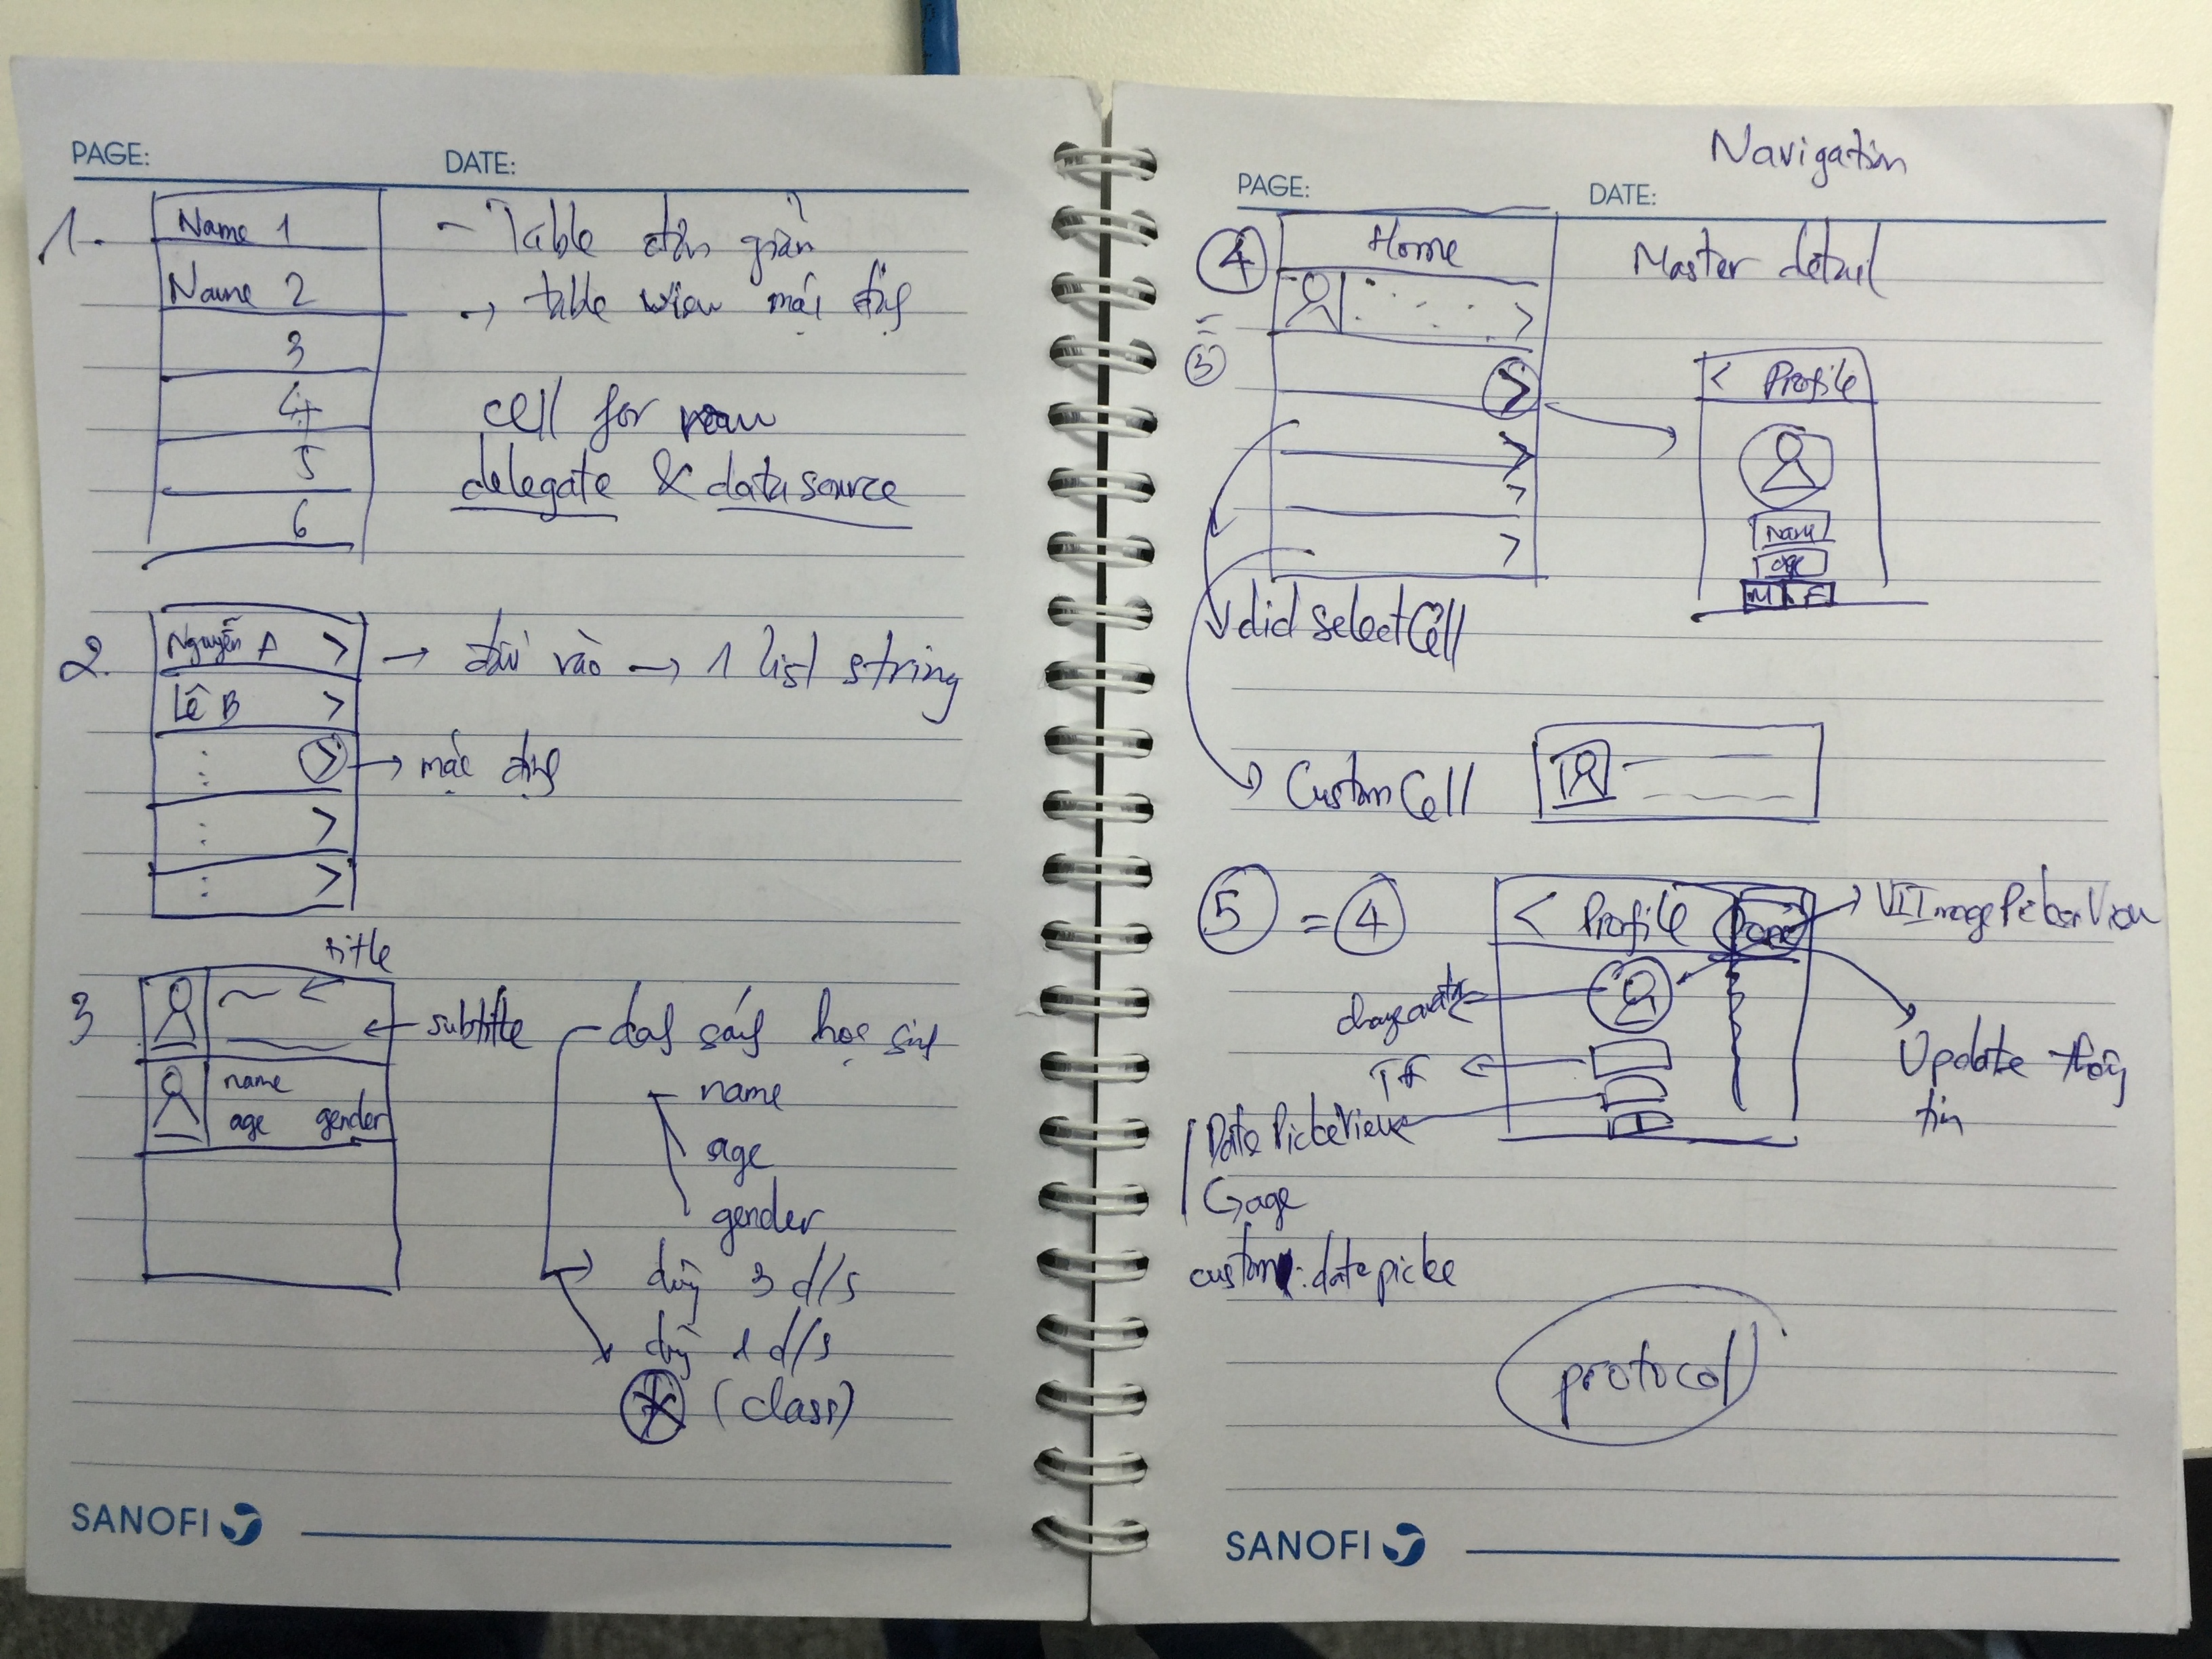 PAGE:
DATE:
1.
Name 1
Name 2
3
4
5
6
- Table đơn giản
→ table view mặc định
cell for row
delegate & datasource
2.
Nguyễn A >
Lê B >
⋮ >
⋮ >
⋮ >
→ đầu vào → 1 list string
→ mặc định
3
title
subtitle
name
age gender
danh sách học sinh
name
age
gender
dùng 3 d/s
dùng 1 d/s
* (class)
SANOFI
Navigation
PAGE:
DATE:
4
= 3
Home
Master detail
< Profile
Name
age
M F
did selectCell
Custom Cell
5 = 4
< Profile Done
change avatar
TF
Date PickerView
age
custom: datepicke
Update thông
tin
protocol
SANOFI